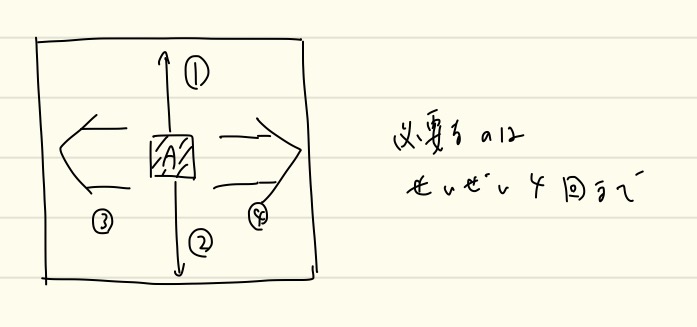 ①
A
③
④
②
必要なのは
せいぜい4回まで